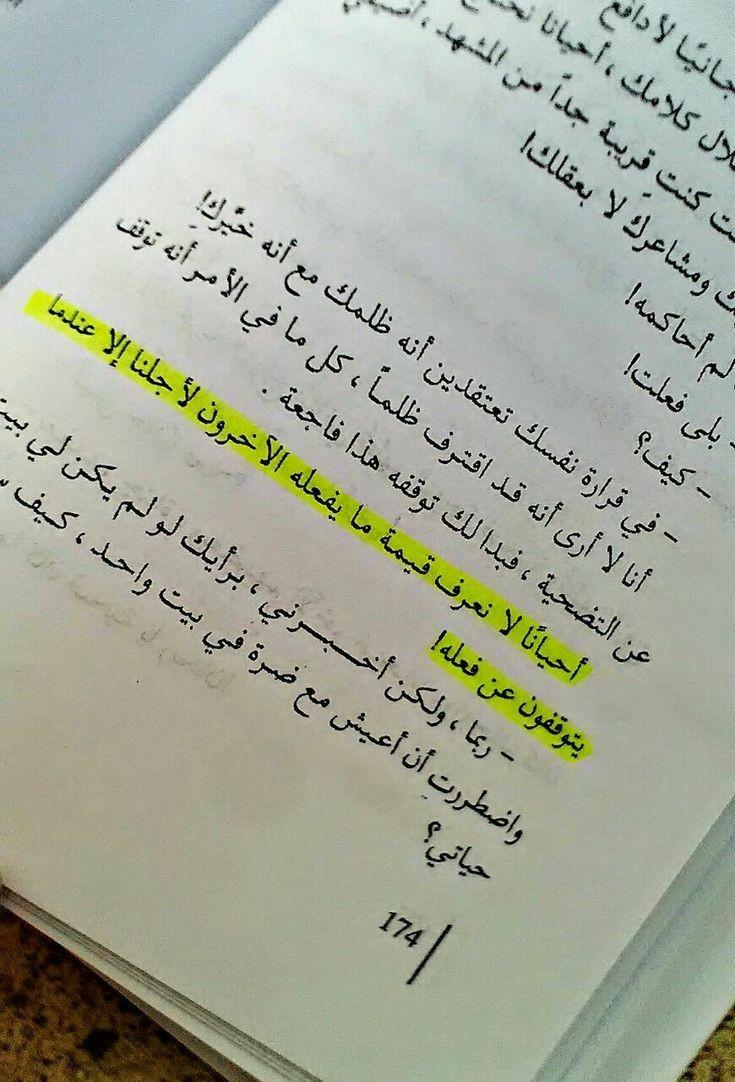 جانبيًا لأدافع
خلال كلامك ، أحيانا
كنتِ قريبة جداً من المشهد ،
ومشاعركِ لا بعقلك!
لم أحاكمه!
- بلى فعلت!
- كيف؟
- في قرارة نفسك تعتقدين أنه ظلمك مع أنه خيَّركِ!
أنا لا أرى أنه قد اقترف ظلماً ، كل ما في الأمر أنه توقف
عن التضحية ، فبدا لك توقفه هذا فاجعة .
أحيانًا لا نعرف قيمة ما يفعله الآخرون لأجلنا إلا عندما
يتوقفون عن فعله!
- ربما ، ولكن أخبـرني ، برأيك لو لم يكن لي بيت
واضطررتِ أن أعيش مع ضرة في بيت واحد ، كيف
حياتي؟
174